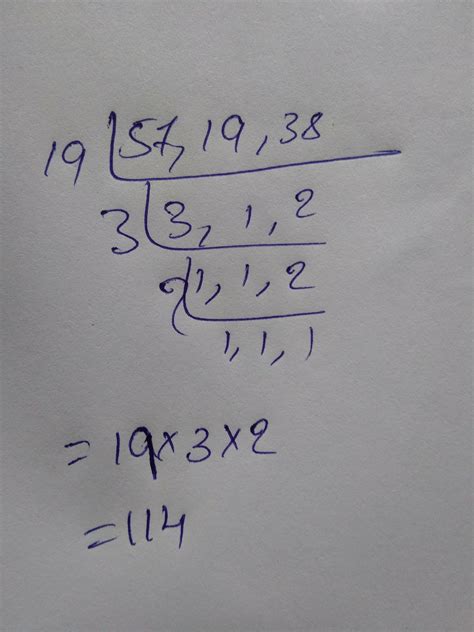 19 57, 19, 38
3 3, 1, 2
2 1, 1, 2
1, 1, 1
= 19 × 3 × 2
= 114